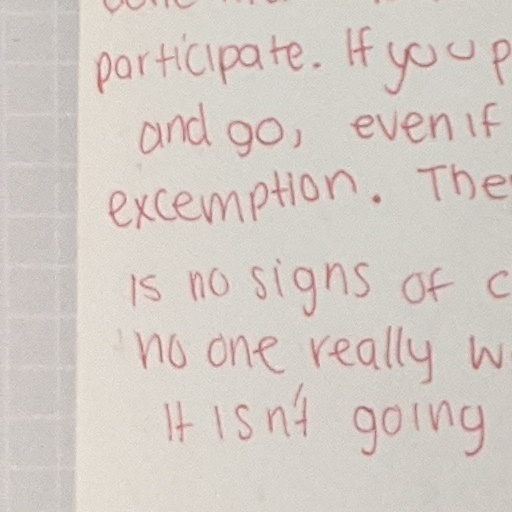 participate. If you p
and go, even if
excemption. The
is no signs of c
no one really w
It isn't going